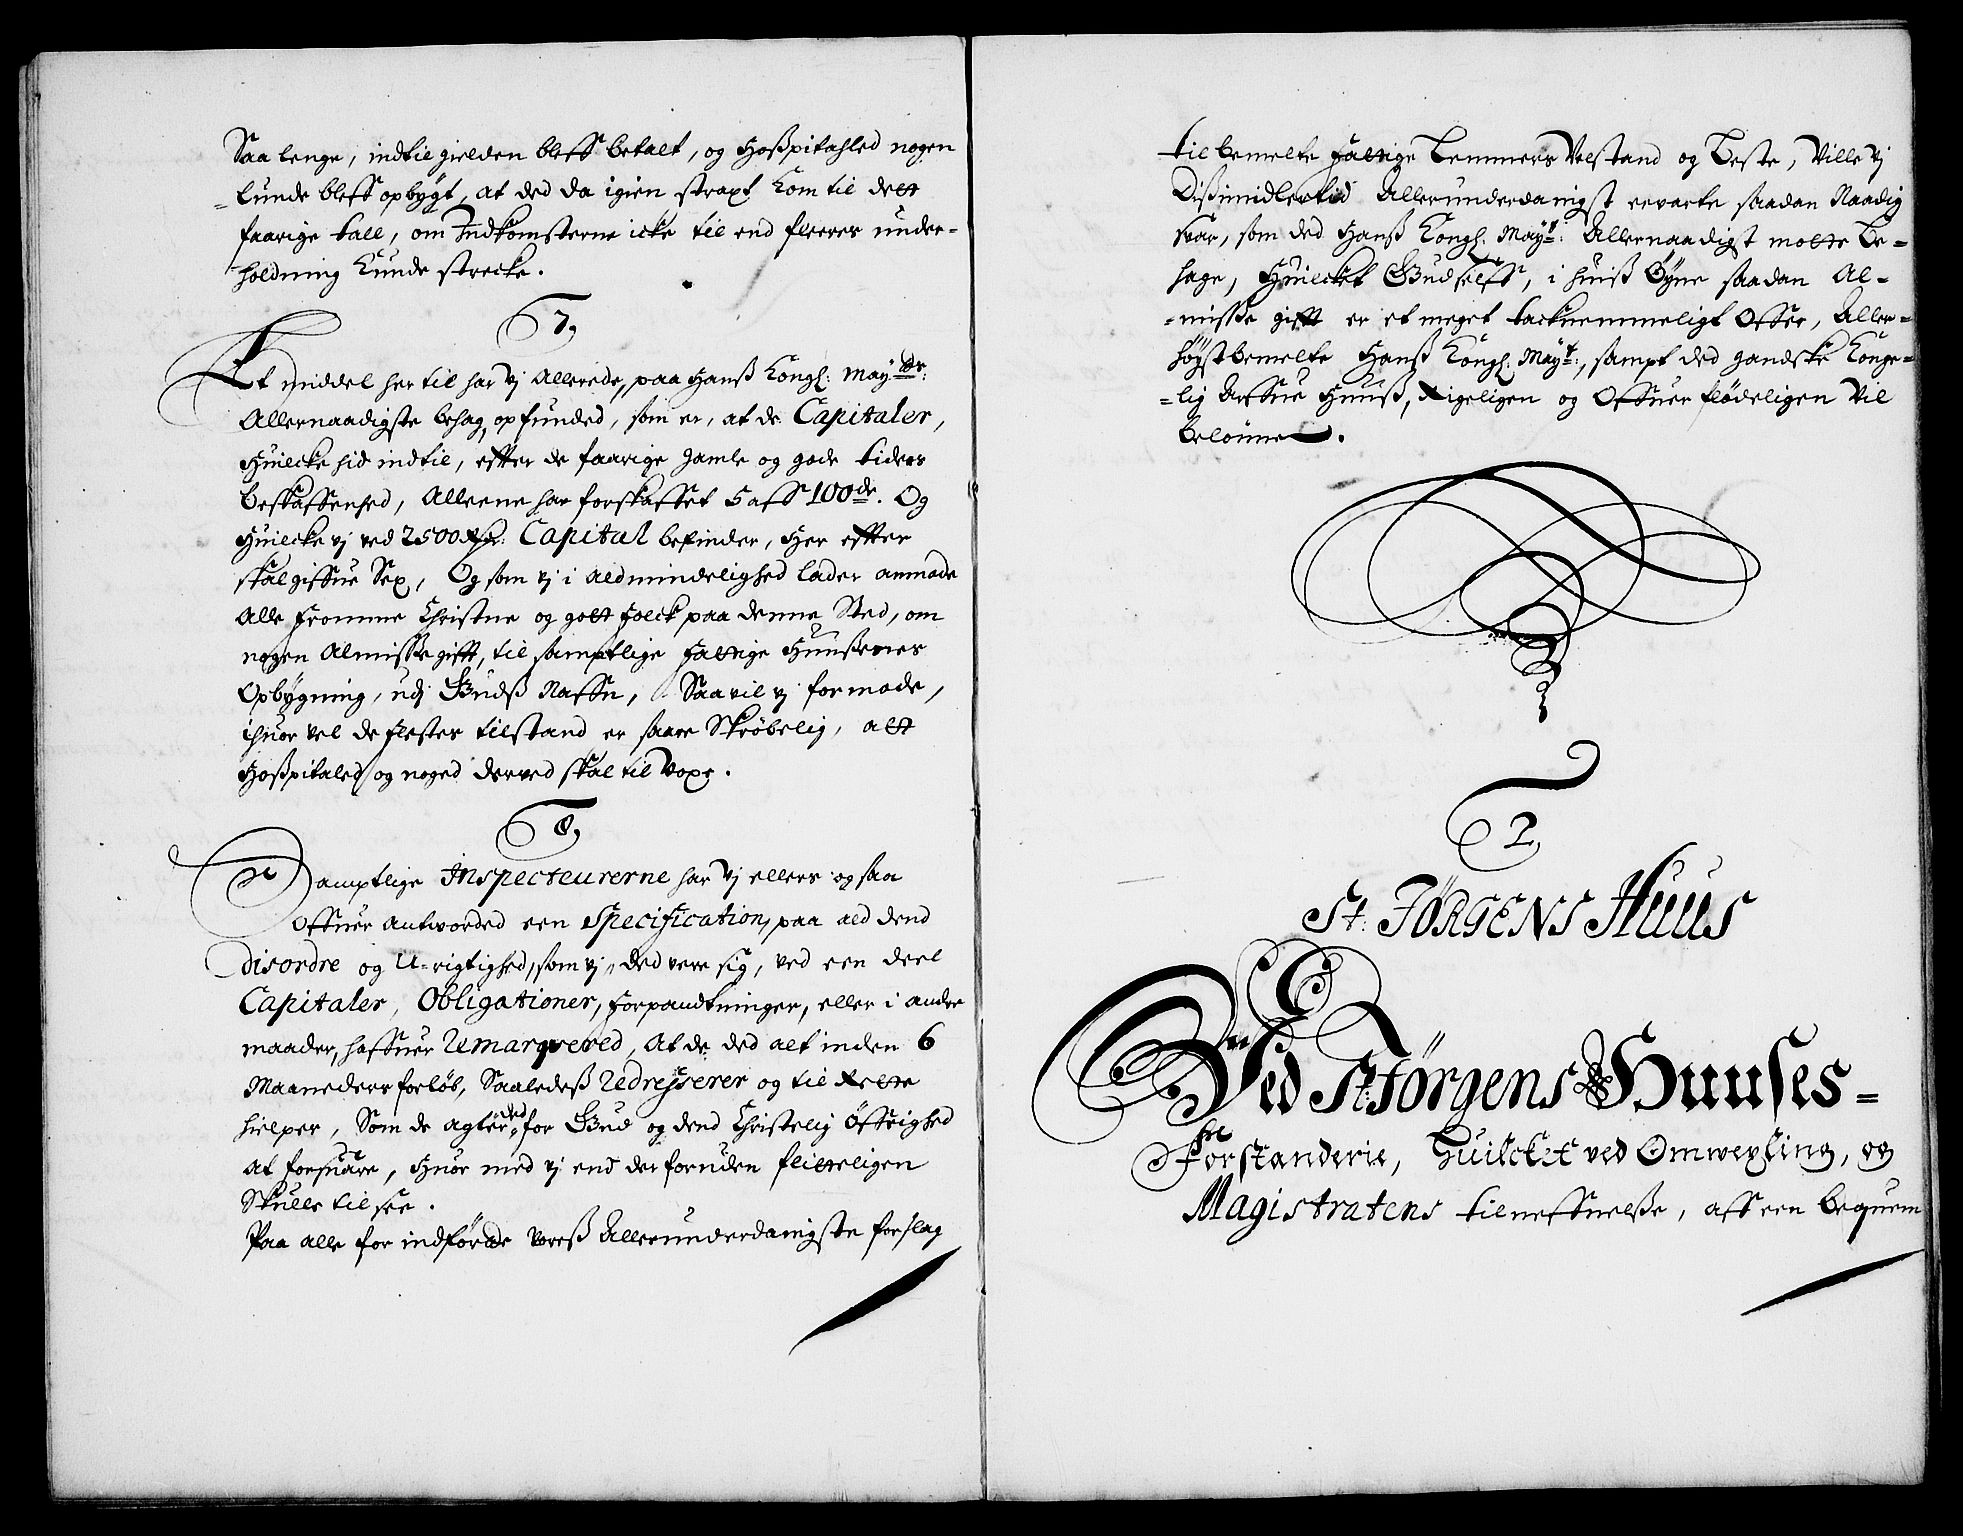 Saa lenge, indtil gielden bleff betalt, og Hoßpitahled nogen
-lunde bleff opbygt, at ded da igien straxt kom til dett
faarige tall, om Indkomsterne icke til end fleeres under-
holdning kunde strecke.
7,
Et middel her til har vj allerede, paa Hanß Kongl: May:ds:
Allernaadigste behag, opfunded, som er, at de Capitaler,
Huilcke hid indtil, efter de faarige gamle og gode tiders
beskaffenhed, Alleene har forskaffet 5 aff 100de. Og
Huilcke vj ved 2500 Rdr: Capital befinder, Her effter
skal giffue Sex, Og som vj i aldmindelighed lader anmode
Alle fromme Christne og gott folck paa denne Sted, om
nogen Almisse gifft, til samptlige fattige Huußenes
Opbygning, udj Gudß Naffn, Saa vil vj formode,
ihuor vel de flestes tilstand er saare Skröbelig, att
Hoßpitaled og noged derved skal til voxe.
8,
Samptlige Inspecteurerne har vj ellers og saa
offuer antvorded een Specification, paa ald dend
disordre og U-rigtighed, som vj, ded vere sig, ved een deel
Capitaler, Obligationer, forpandtninger, eller i andre
maader, haffuer Remarqvered, At de ded alt inden 6
Maaneders forlöb, Saaledeß Redresserer og til Rette
hielper, Som de agter ded for Gud og dend Christelig Öffrighed
at forsuare, Huor med vj end der foruden flitteligen
Skulle til see.
Paa alle for indförde voreß Allerunderdanigste forslag
til bemelte fattige Lemmers Velstand og beste, Ville vj
Dißimidlertid Allerunderdanigst ervarte saadan Naadig
svar, som ded Hanß Kongl: May:t: Allernaadigst motte be-
hage, Huilcket Gud self, i huiß Öyne saadan Al-
-misse gifft er et meget tacknemmeligt Offer, Aller-
höystbemelte Hanß Kongl: May:t:, sampt ded gandske Konge-
-lig Arffue Huuß, Rigeligen og Offuerflödeligen vil
belönne.
2,
St: JÖRGENS HUUS
Ved St: Jörgens Huuses-
Forstanderie, Huilcket ved Omvexling, og
Magistratens tilneffnelße, aff een beqvem